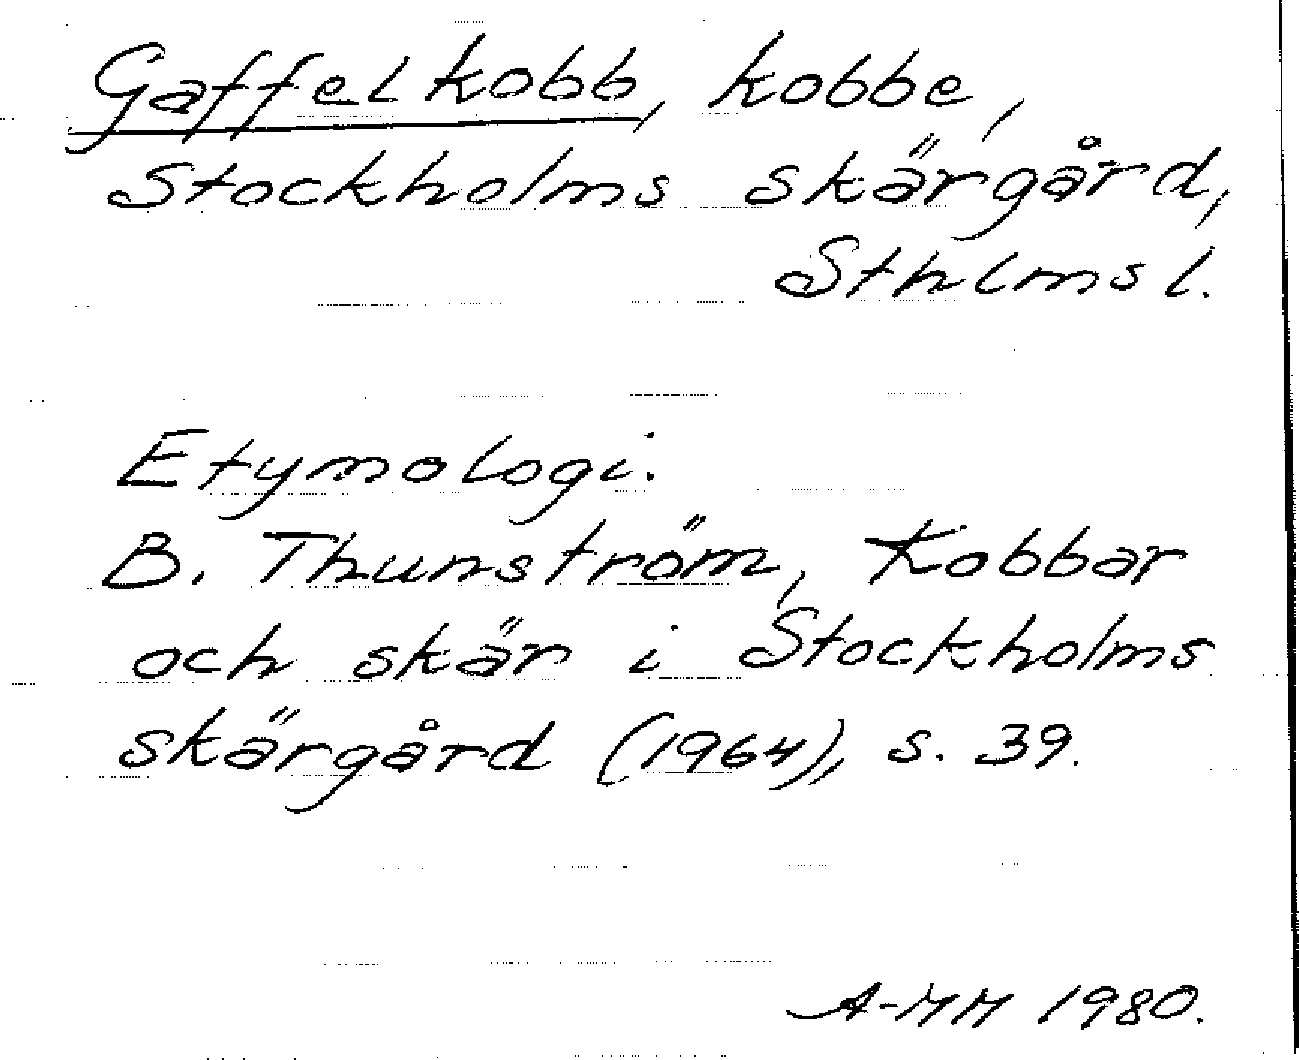 Gaffelkobb, kobbe,
Stockholms skärgård,
Sthlms l.
Etymologi.
B. Thunström, Kobbar
och skär i Stockholms
skärgård (1964), s. 39.
A-MM 1980.